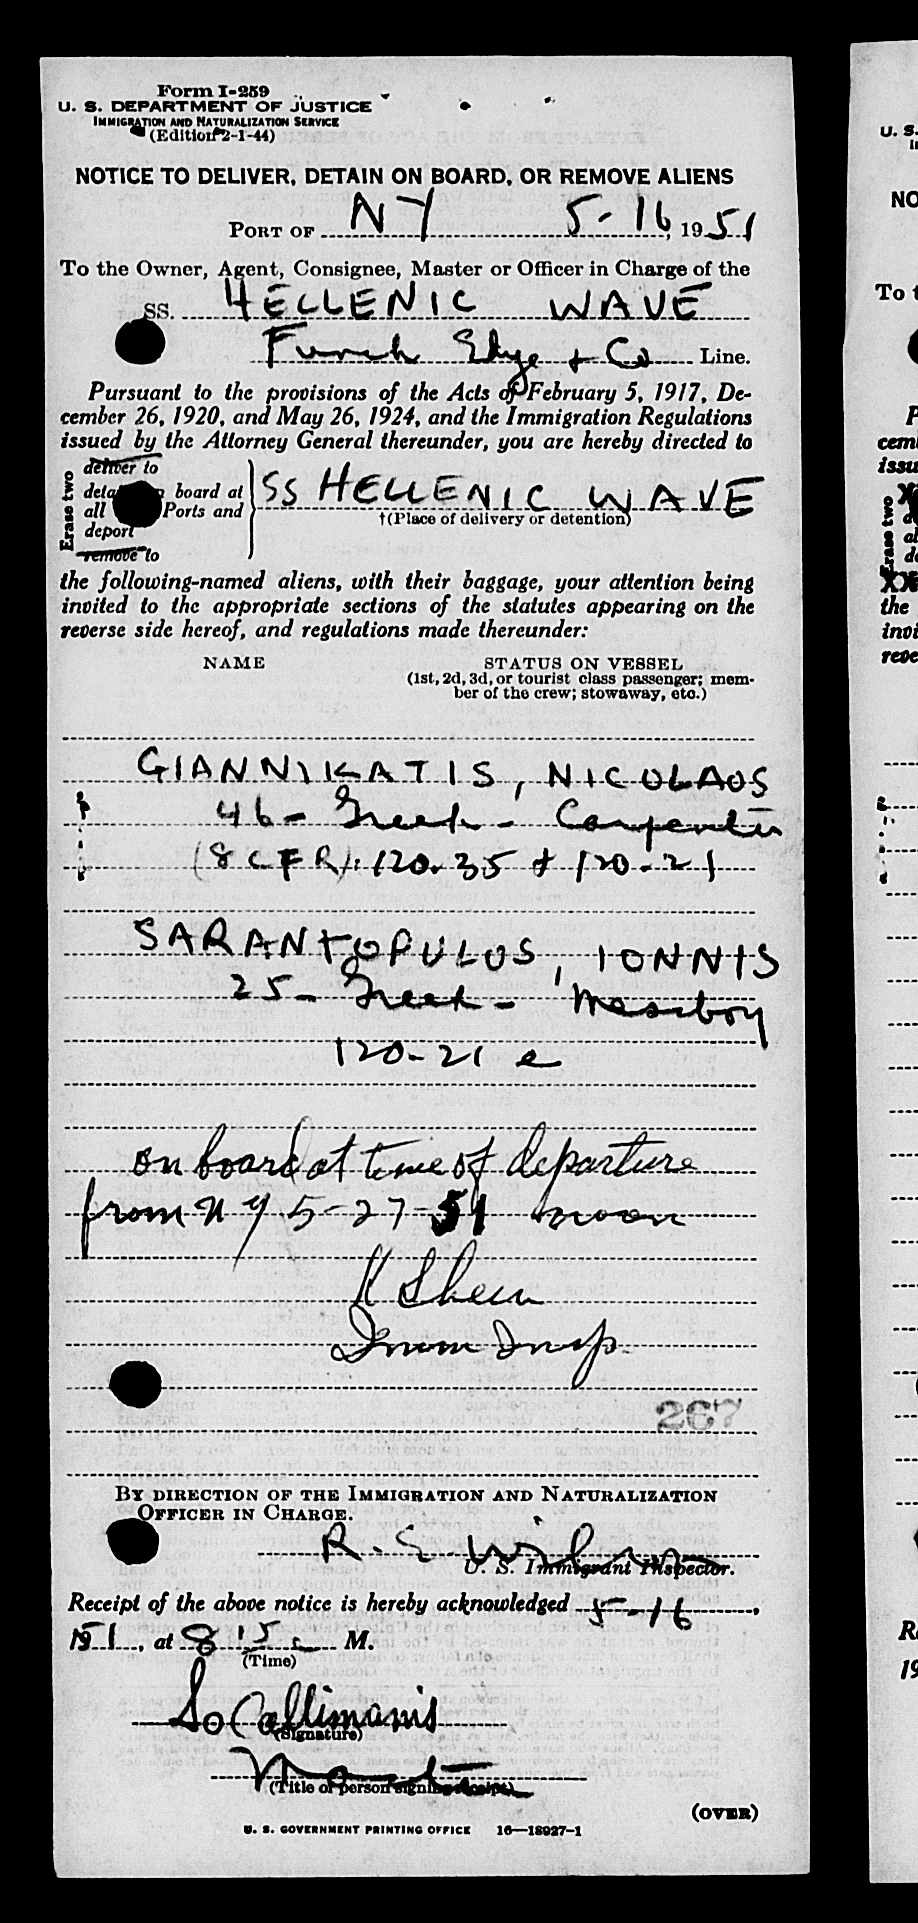 Form I-259
U. S. DEPARTMENT OF JUSTICE
IMMIGRATION AND NATURALIZATION SERVICE
(Edition 2-1-44)
NOTICE TO DELIVER, DETAIN ON BOARD, OR REMOVE ALIENS
PORT OF NY 5-16, 1951
To the Owner, Agent, Consignee, Master or Officer in Charge of the
SS. HELLENIC WAVE
Funch Edye + Co Line.
Pursuant to the provisions of the Acts of February 5, 1917, De-
cember 26, 1920, and May 26, 1924, and the Immigration Regulations
issued by the Attorney General thereunder, you are hereby directed to
Erase two
deliver to
board at
all Ports and
deport
remove to
SS HELLENIC WAVE
†(Place of delivery or detention)
the following-named aliens, with their baggage, your attention being
invited to the appropriate sections of the statutes appearing on the
reverse side hereof, and regulations made thereunder:
NAME STATUS ON VESSEL
(1st, 2d, 3d, or tourist class passenger; mem-
ber of the crew; stowaway, etc.)
GIANNIKATIS, NICOLAOS
46 - Greek - Carpenter
(8 CFR) 120.35 + 120-21
SARANTOPULUS, IONNIS
25 - Greek - Messboy
120-21 e
on board at time of departure
from NY 5-27-51 noon
K Shein
Imm Insp.
267
BY DIRECTION OF THE IMMIGRATION AND NATURALIZATION
OFFICER IN CHARGE.
R. E. Wilson
U. S. Immigrant Inspector.
Receipt of the above notice is hereby acknowledged 5-16,
1951, at 8 M.
(Time)
Callimanis
(Signature)
Master
(Title of person signing receipt)
(OVER)
U. S. GOVERNMENT PRINTING OFFICE 16—18927-1